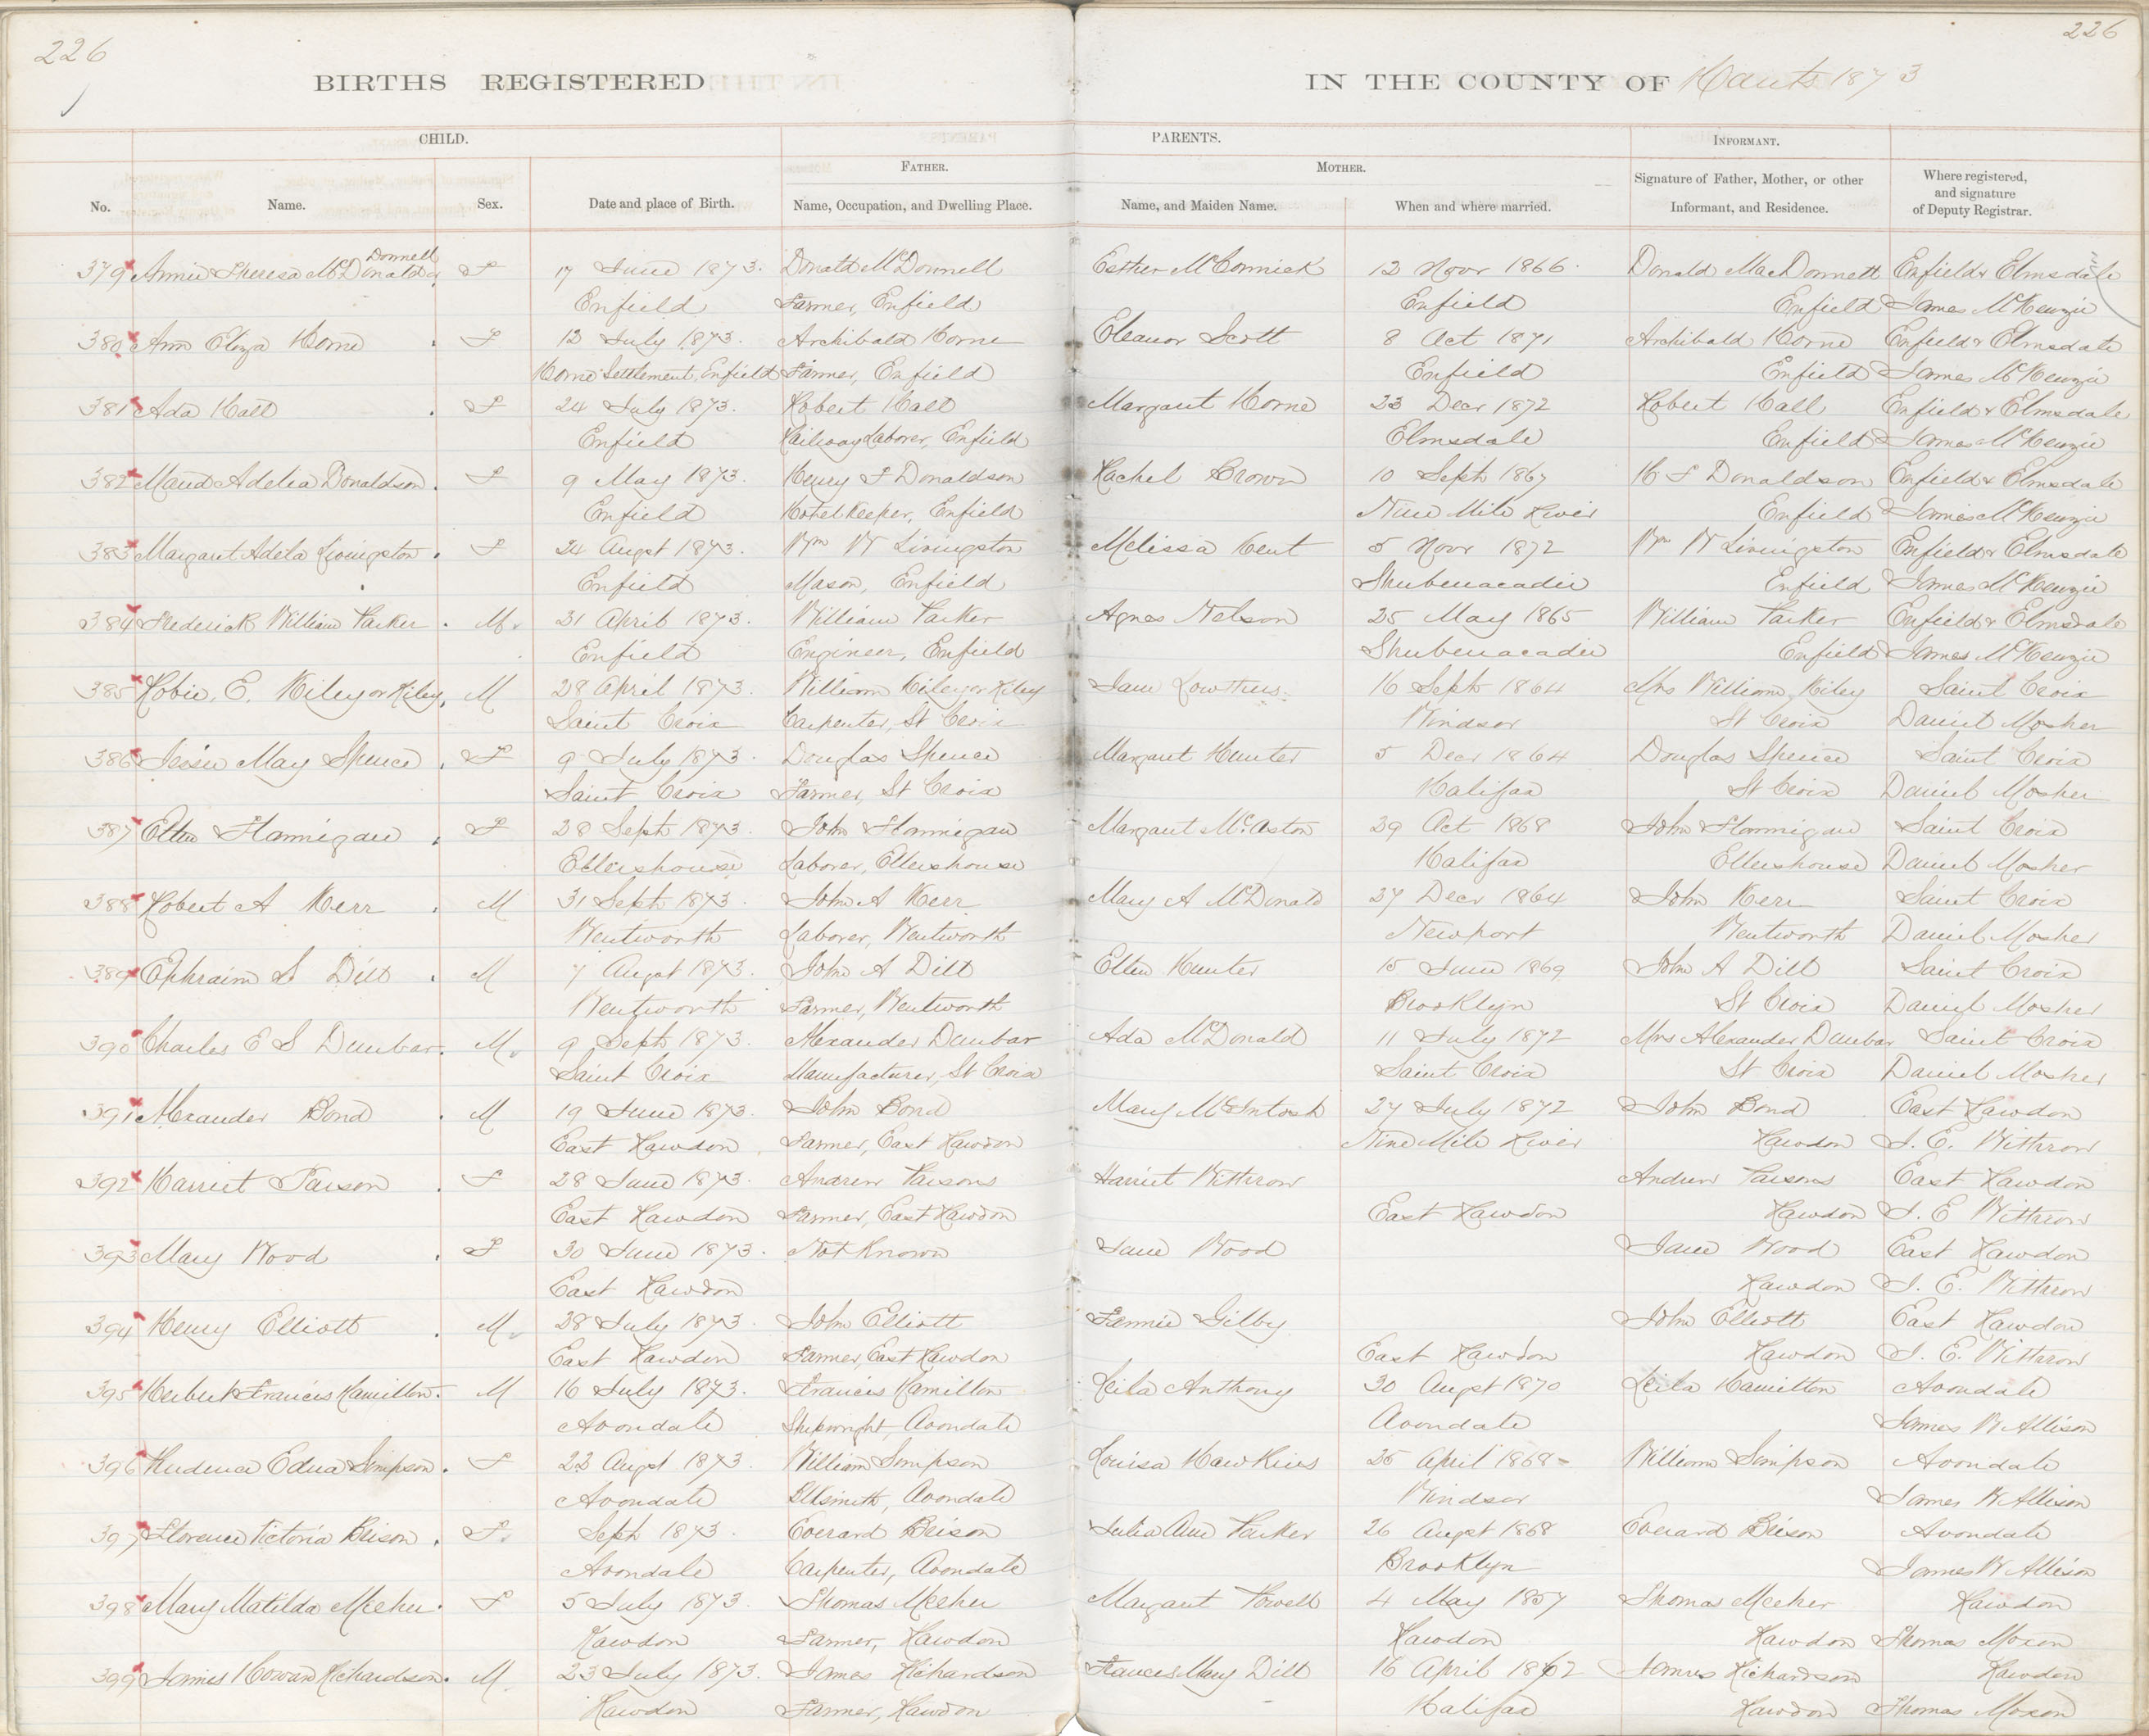 226
226
BIRTHS REGISTERED IN THE COUNTY OF Hants 1873
CHILD. PARENTS. INFORMANT.
FATHER. MOTHER.
No. Name. Sex. Date and place of Birth. Name, Occupation, and Dwelling Place. Name, and Maiden Name. When and where married. Signature of Father, Mother, or other Informant, and Residence. Where registered, and signature of Deputy Registrar.
Donnell
379 Annie Theresa McDonald F 17 June 1873. Donald McDonnell Esther McCormick 12 Novr 1866. Donald MacDonnell Enfield & Elmsdale
Enfield Farmer, Enfield Enfield Enfield James McKenzie
380 Ann Eliza Horne F 12 July 1873. Archibald Horne Eleanor Scott 8 Oct 1871 Archibald Horne Enfield & Elmsdale
Horne Settlement, Enfield Farmer, Enfield Enfield Enfield James McKenzie
381 Ada Hall F 24 July 1873. Robert Hall Margaret Horne 23 Decr 1872 Robert Hall Enfield & Elmsdale
Enfield Railway Laborer, Enfield Elmsdale Enfield James McKenzie
382 Maud Adelia Donaldson F 9 May 1873. Henry F Donaldson Rachel Brown 10 Sept 1867 H F Donaldson Enfield & Elmsdale
Enfield Hotel Keeper, Enfield Nine Mile River Enfield James McKenzie
383 Margaret Adela Livingston F 24 Augst 1873. Wm W Livingston Melissa Kent 5 Novr 1872 Wm W Livingston Enfield & Elmsdale
Enfield Mason, Enfield Shubenacadie Enfield James McKenzie
384 Frederick William Parker M 21 April 1873. William Parker Agnes Nelson 25 May 1865 William Parker Enfield & Elmsdale
Enfield Engineer, Enfield Shubenacadie Enfield James McKenzie
385 Robie. E. Kiley or Riley M 28 April 1873. William Riley or Kiley Jane Lowthers 16 Sept 1864 Mrs William Riley Saint Croix
Saint Croix Carpenter, St Croix Windsor St Croix Daniel Mosher
386 Jessie May Spence F 9 July 1873. Douglas Spence Margaret Hunter 5 Decr 1864 Douglas Spence Saint Croix
Saint Croix Farmer, St Croix Halifax St Croix Daniel Mosher
387 Ellen Flannigan F 28 Sept 1873. John Flannigan Margaret McAston 29 Oct 1868 John Flannigan Saint Croix
Ellershouse Laborer, Ellershouse Halifax Ellershouse Daniel Mosher
388 Robert A Kerr M 31 Sept 1873. John A Kerr Mary A McDonald 27 Decr 1864 John Kerr Saint Croix
Wentworth Laborer, Wentworth Newport Wentworth Daniel Mosher
389 Ephraim S Dill M 7 Augst 1873. John A Dill Ellen Hunter 15 June 1869 John A Dill Saint Croix
Wentworth Farmer, Wentworth Brooklyn St Croix Daniel Mosher
390 Charles E S Dunbar M 9 Sept 1873. Alexander Dunbar Ada McDonald 11 July 1872 Mrs Alexander Dunbar Saint Croix
Saint Croix Manufacturer, St Croix Saint Croix St Croix Daniel Mosher
391 Alexander Bond M 19 June 1873. John Bond Mary McIntosh 27 July 1872 John Bond East Rawdon
East Rawdon Farmer, East Rawdon Nine Mile River Rawdon J. E. Withrow
392 Harriet Parson F 28 June 1873. Andrew Parsons Harriet Withrow Andrew Parsons East Rawdon
East Rawdon Farmer, East Rawdon East Rawdon Rawdon J. E Withrow
393 Mary Wood F 30 June 1873. Not Known Jane Wood Jane Wood East Rawdon
East Rawdon Rawdon J. E. Withrow
394 Henry Elliott M 28 July 1873. John Elliott Fannie Gilby John Elliott East Rawdon
East Rawdon Farmer, East Rawdon East Rawdon Rawdon J. E. Withrow
395 Herbert Francis Hamilton M 16 July 1873. Francis Hamilton Leila Anthony 30 Augst 1870 Leila Hamilton Avondale
Avondale Shipwright, Avondale Avondale James W Allison
396 Prudence Edna Simpson F 22 Augst 1873. William Simpson Louisa Hawkins 25 April 1868 William Simpson Avondale
Avondale Blksmith, Avondale Windsor James W Allison
397 Florence Victoria Brison F Sept 1873. Everard Brison Julia Ann Parker 26 Augst 1868 Everard Brison Avondale
Avondale Carpenter, Avondale Brooklyn James W Allison
398 Mary Matilda Meeher F 5 July 1873. Thomas Meeher Margaret Powell 4 May 1857 Thomas Meeher Rawdon
Rawdon Farmer, Rawdon Rawdon Rawdon Thomas Moxon
399 James Howard Richardson M 23 July 1873. James Richardson Frances Mary Dill 16 April 1862 James Richardson Rawdon
Rawdon Farmer, Rawdon Halifax Rawdon Thomas Moxon